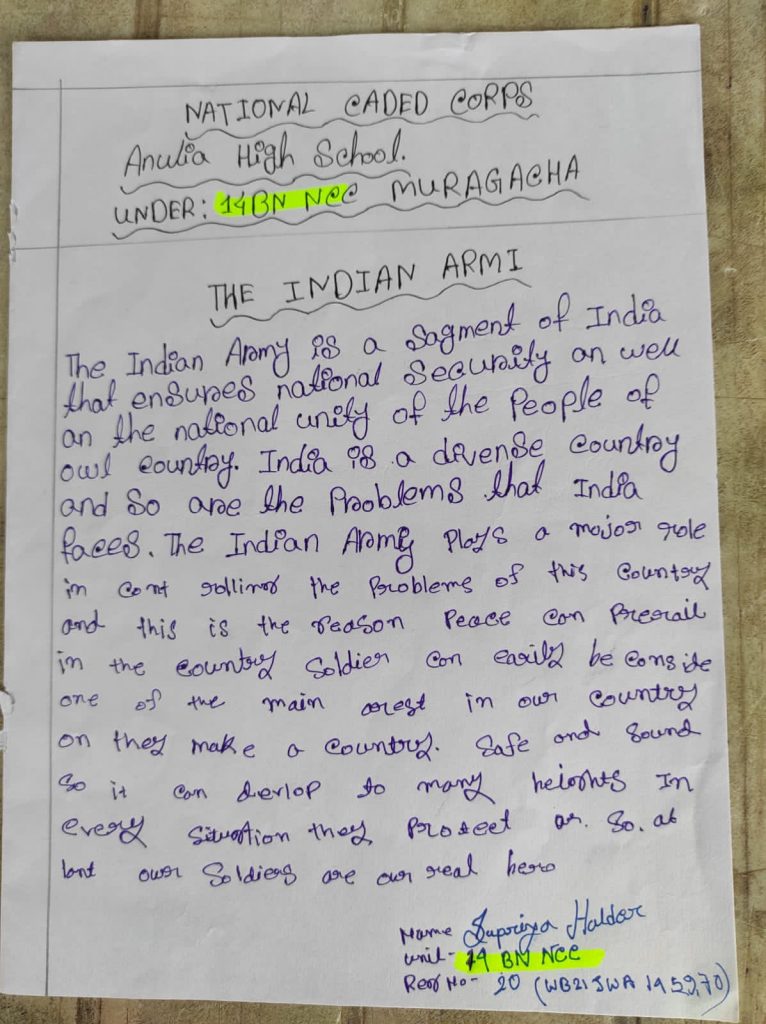 NATIONAL CADED CORPS
Anulia High School.
UNDER: 14BN NCC MURAGACHA
THE INDIAN ARMI
The Indian Army is a Sagment of India
that ensures national Security an well
an the national unity of the People of
owl country. India is a divense country
and So are the Problems that India
faces. The Indian Army Plays a major role
in cont rolling the Problems of this Country
and this is the reason Peace can Prevail
in the country Soldier can easily be conside
one of the main arest in our country
on they make a country. Safe and Sound
So it can devlop to many heights In
every Situation they Protect as. So. at
lant ower Soldiers are our real hero
Name Supriya Halder
Unit- 14 BN NCC
Reg No- 20 (WB21SWA 145970)